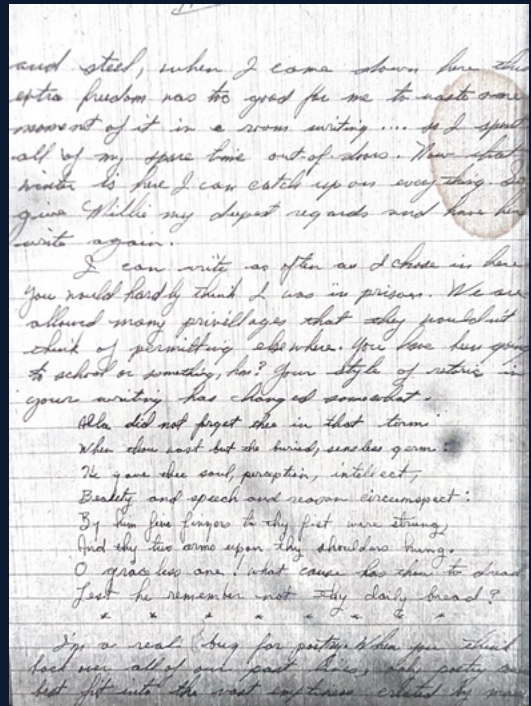 and steel, when I came down here this
extra freedom was too good for me to waste one
moment of it in a room writing .... so I spent
all of my spare time out-of-doors. Now that
winter is here I can catch up on everything. So
give Millie my deepest regards and have her
write again.
I can write as often as I chose in here
You would hardly think I was in prison. We are
allowed many privillages that they wouldn't
think of permitting elsewhere. You have been going
to school or something, has? Your style of retoric in
your writing has changed somewhat.
Alla did not forget thee in that term
When thou wast but the buried, senseless germ:
He gave thee soul, perception, intellect,
Beauty and speech and reason circumspect:
By him five fingers to thy fist were strung,
And thy two arms upon thy shoulders hung.
O graceless one! what cause has thou to dread
Lest he remember not thy daily bread?
* * * * * * * *
I'm a real bug for poetry. When you think
back over all of our past lives, only poetry can
best fit into the vast emptiness created by